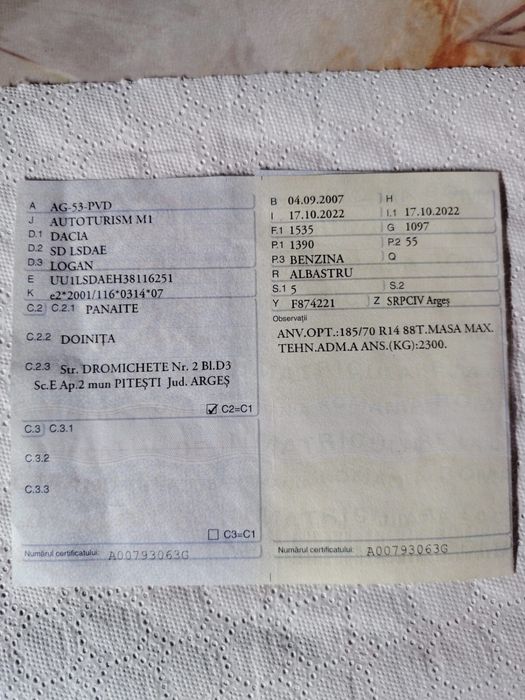 A AG-53-PVD
J AUTOTURISM M1
D.1 DACIA
D.2 SD LSDAE
D.3 LOGAN
E UU1LSDAEH38116251
K e2*2001/116*0314*07
C.2 C.2.1 PANAITE
C.2.2 DOINIȚA
C.2.3 Str. DROMICHETE Nr. 2 Bl.D3
Sc.E Ap.2 mun PITEȘTI Jud. ARGEȘ
C2=C1
C.3 C.3.1
C.3.2
C.3.3
C3=C1
Numărul certificatului: A00793063G
B 04.09.2007 H
I 17.10.2022 I.1 17.10.2022
F.1 1535 G 1097
P.1 1390 P.2 55
P.3 BENZINA Q
R ALBASTRU
S.1 5 S.2
Y F874221 Z SRPCIV Argeș
Observații
ANV.OPT.:185/70 R14 88T.MASA MAX.
TEHN.ADM.A ANS.(KG):2300.
Numărul certificatului: A00793063G